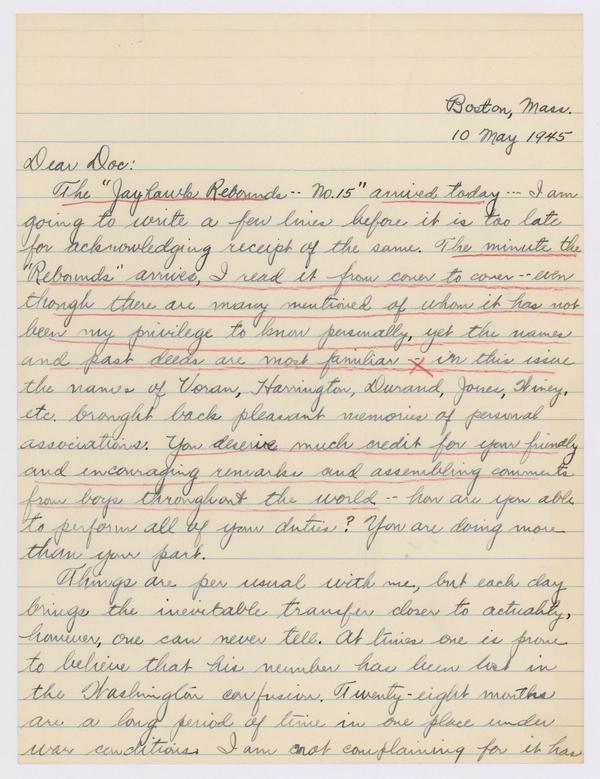 Boston, Mass.
10 May 1945
Dear Doc:
The "Jayhawk Rebounds -- No.15" arrived today --- I am
going to write a few lines before it is too late
for acknowledging receipt of the same. The minute the
"Rebounds" arrives, I read it from cover to cover -- even
though there are many mentioned of whom it has not
been my privilege to know personally, yet the names
and past deeds are most familiar -- in this issue
the names of Voran, Harrington, Durand, Jones, Winey,
etc. brought back pleasant memories of personal
associations. You deserve much credit for your friendly
and encouraging remarks and assembling comments
from boys throughout the world -- how are you able
to perform all of your duties? You are doing more
than your part.
Things are per usual with me, but each day
brings the inevitable transfer closer to actuality,
however, one can never tell. At times one is prone
to believe that his number has been lost in
the Washington confusion. Twenty-eight months
are a long period of time in one place under
war conditions. I am not complaining for it has